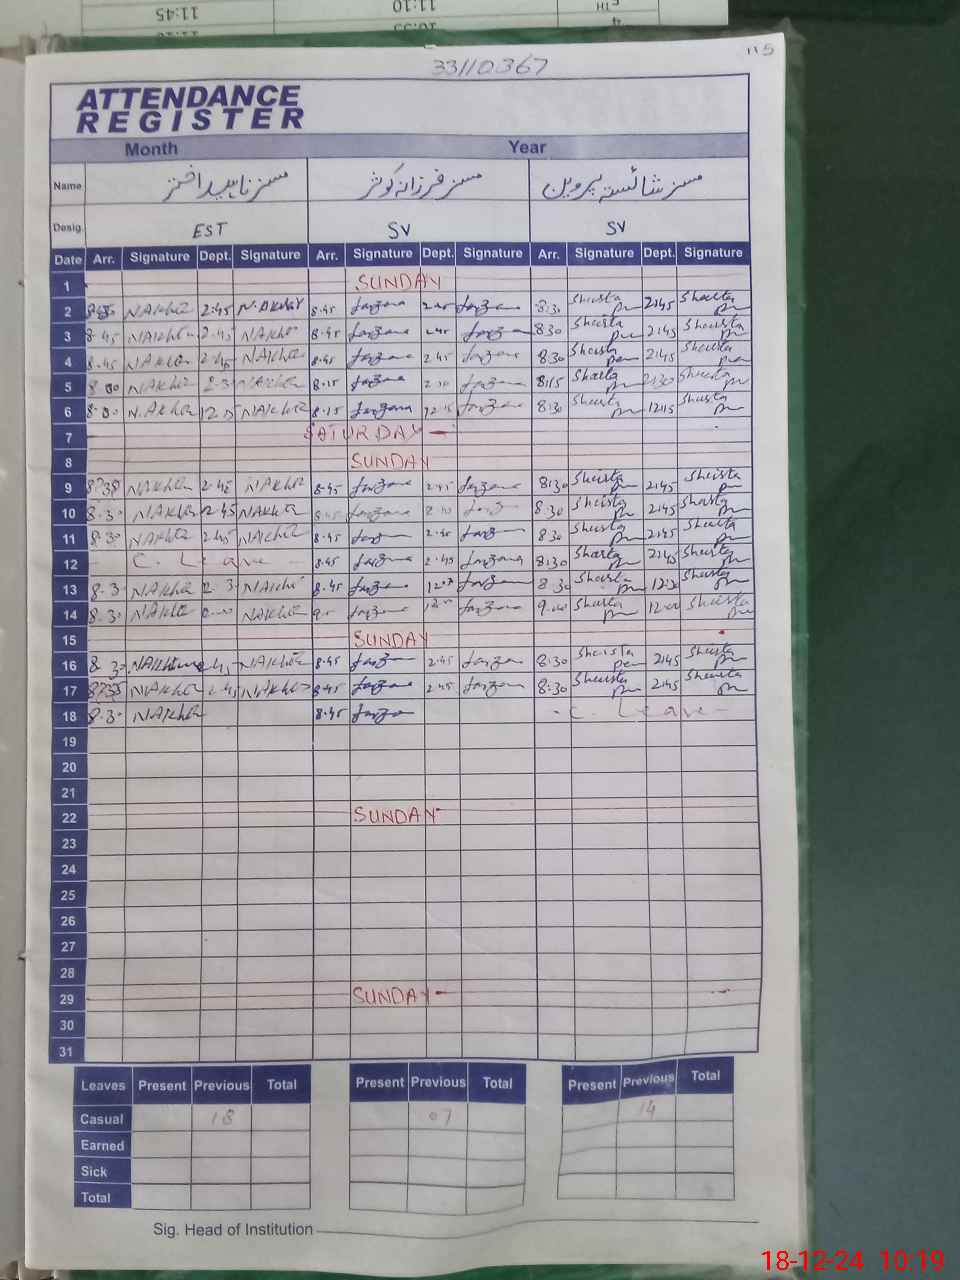 11:45 11:10 5TH
10:35 4
33110367
115
ATTENDANCE
REGISTER
Month Year
Name مسز ناہید اختر مسز فرزانہ کوثر مسز شائستہ پروین
Desig. EST SV SV
Date Arr. Signature Dept. Signature Arr. Signature Dept. Signature Arr. Signature Dept. Signature
1 SUNDAY
2 NAkhtr 2:45 8.45 farzana 2.45 farzana 8:30 Shaista 2:45 Shaista
3 8.45 2.45 NAkhtr 8.45 farzana 2.45 8:30 Shaista 2:45 Shaista
4 8.45 NAkhtr 2.45 NAkhtr 8.45 farzana 2.45 farzana 8:30 Shaista 2:45 Shaista
5 8.00 NAkhtr NAkhtr 8.15 farzana farzana 8:15 Shaista 2:30 Shaista
6 N.Akhtr NAkhtr 8.15 farzana farzana 8:30 Shaista 12:15 Shaista
7 SATURDAY
8 SUNDAY
9 NAkhtr 2.45 NAkhtr 8.45 farzana 2.45 farzana 8:30 Shaista 2:45 Shaista
10 8.30 NAkhtr 2.45 NAkhtr 8.45 farzana farzana 8.30 Shaista 2:45 Shaista
11 8.30 NAkhtr 2.45 NAkhtr 8.45 2.45 8.30 Shaista 2:45 Shaista
12 C. Leave 8.45 farzana 2.45 farzana 8:30 Shaista 2:45 Shaista
13 8.3 NAkhtr NAkhtr 8.45 farzana farzana 8:30 Shaista Shaista
14 8.30 NAkhtr NAkhtr farzana farzana 9.00 Shaista 12:00 Shaista
15 SUNDAY
16 8.3 NAkhtr 8.45 2.45 farzana 8:30 Shaista 2:45 Shaista
17 NAkhtr 2.45 NAkhtr 8.45 farzana 2.45 farzana 8:30 Shaista 2:45 Shaista
18 8.30 NAkhtr 8.45 farzana C. Leave
19
20
21
22 SUNDAY
23
24
25
26
27
28
29 SUNDAY
30
31
Leaves Present Previous Total Present Previous Total Present Previous Total
Casual 18 07 14
Earned
Sick
Total
Sig. Head of Institution
18-12-24 10:19